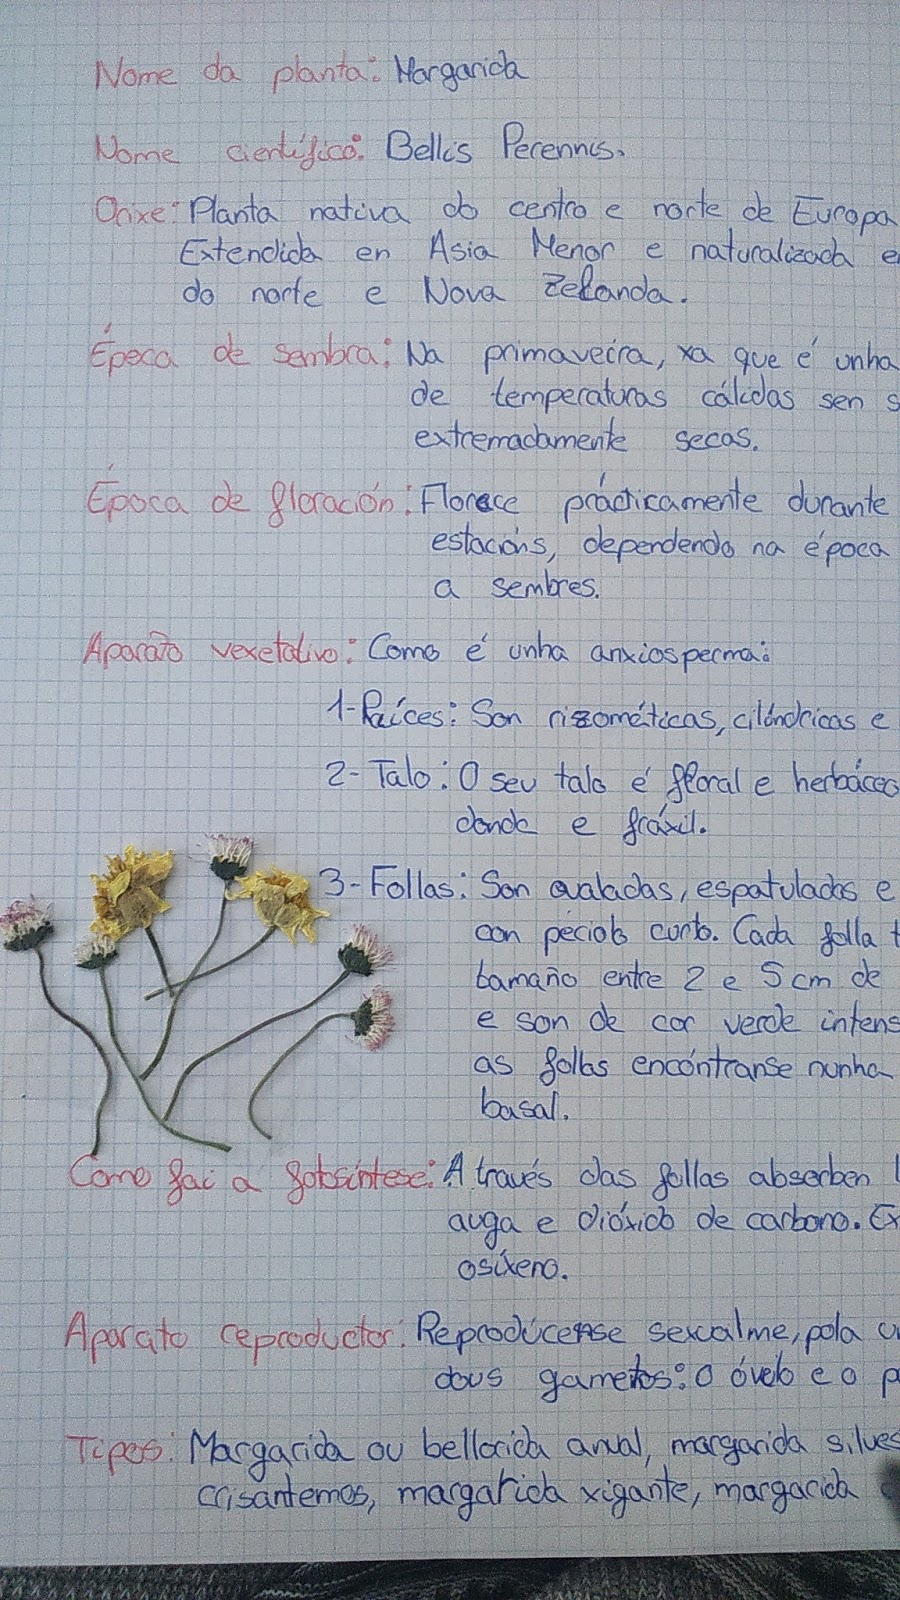 Nome da planta: Margarida
Nome científico: Bellis Perennis.
Orixe: Planta nativa do centro e norte de Europa
Extendida en Asia Menor e naturalizada e
do norte e Nova Zelanda.
Época de sembra: Na primaveira, xa que é unha
de temperaturas cálidas sen s
extremadamente secas.
Época de floración: Florece prácticamente durante
estacións, dependendo na época
a sembres.
Aparato vexetativo: Como é unha anxiosperma:
1-Raíces: Son rizomáticas, cilíndricas e
2-Talo: O seu talo é floral e herbáceo
donde e fráxil.
3-Follas: Son ovaladas, espatuladas e
con pecíolo curto. Cada folla t
tamaño entre 2 e 5 cm de
e son de cor verde intens
as follas encóntranse nunha
basal.
Como fai a fotosíntese: A través das follas absorben l
auga e dióxido de carbono. Ex
osíxeno.
Aparato reproductor: Reprodúcense sexualme, pola u
dous gametos: o óvelo e o p
Tipos: Margarida ou bellorida anual, margarida silves
crisantemos, margarida xigante, margarida